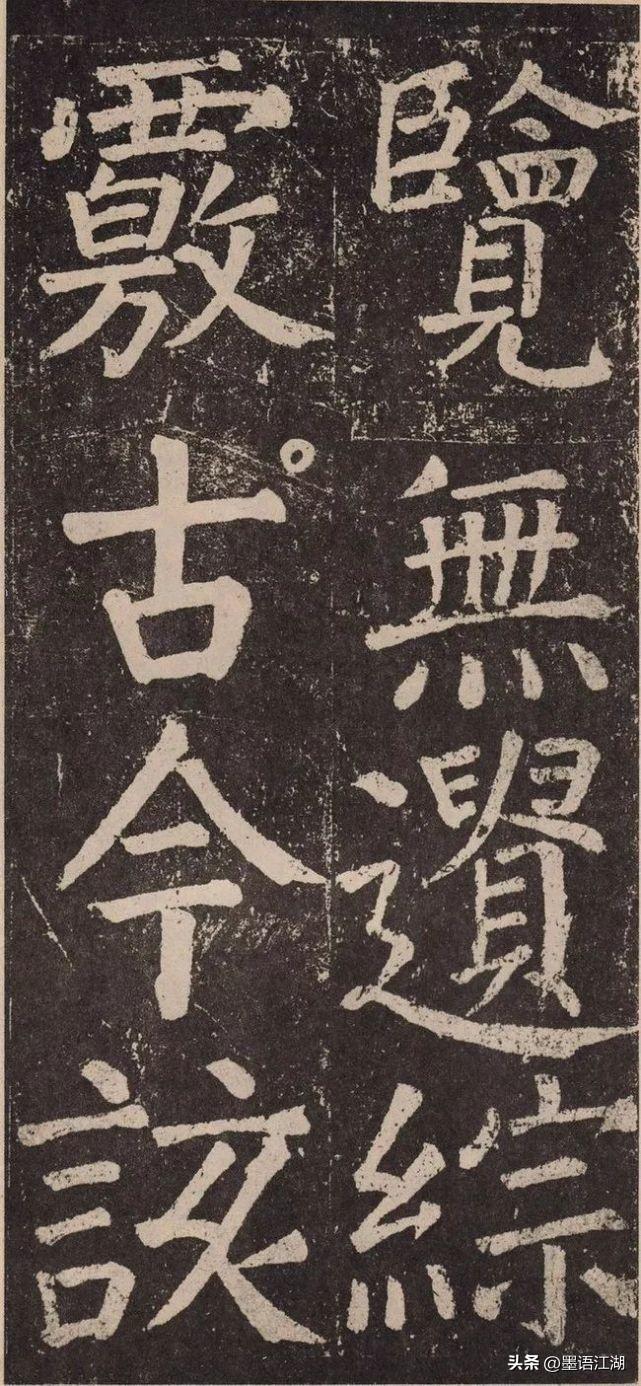 覽無遺綜
覈古今該
头条 @墨语江湖